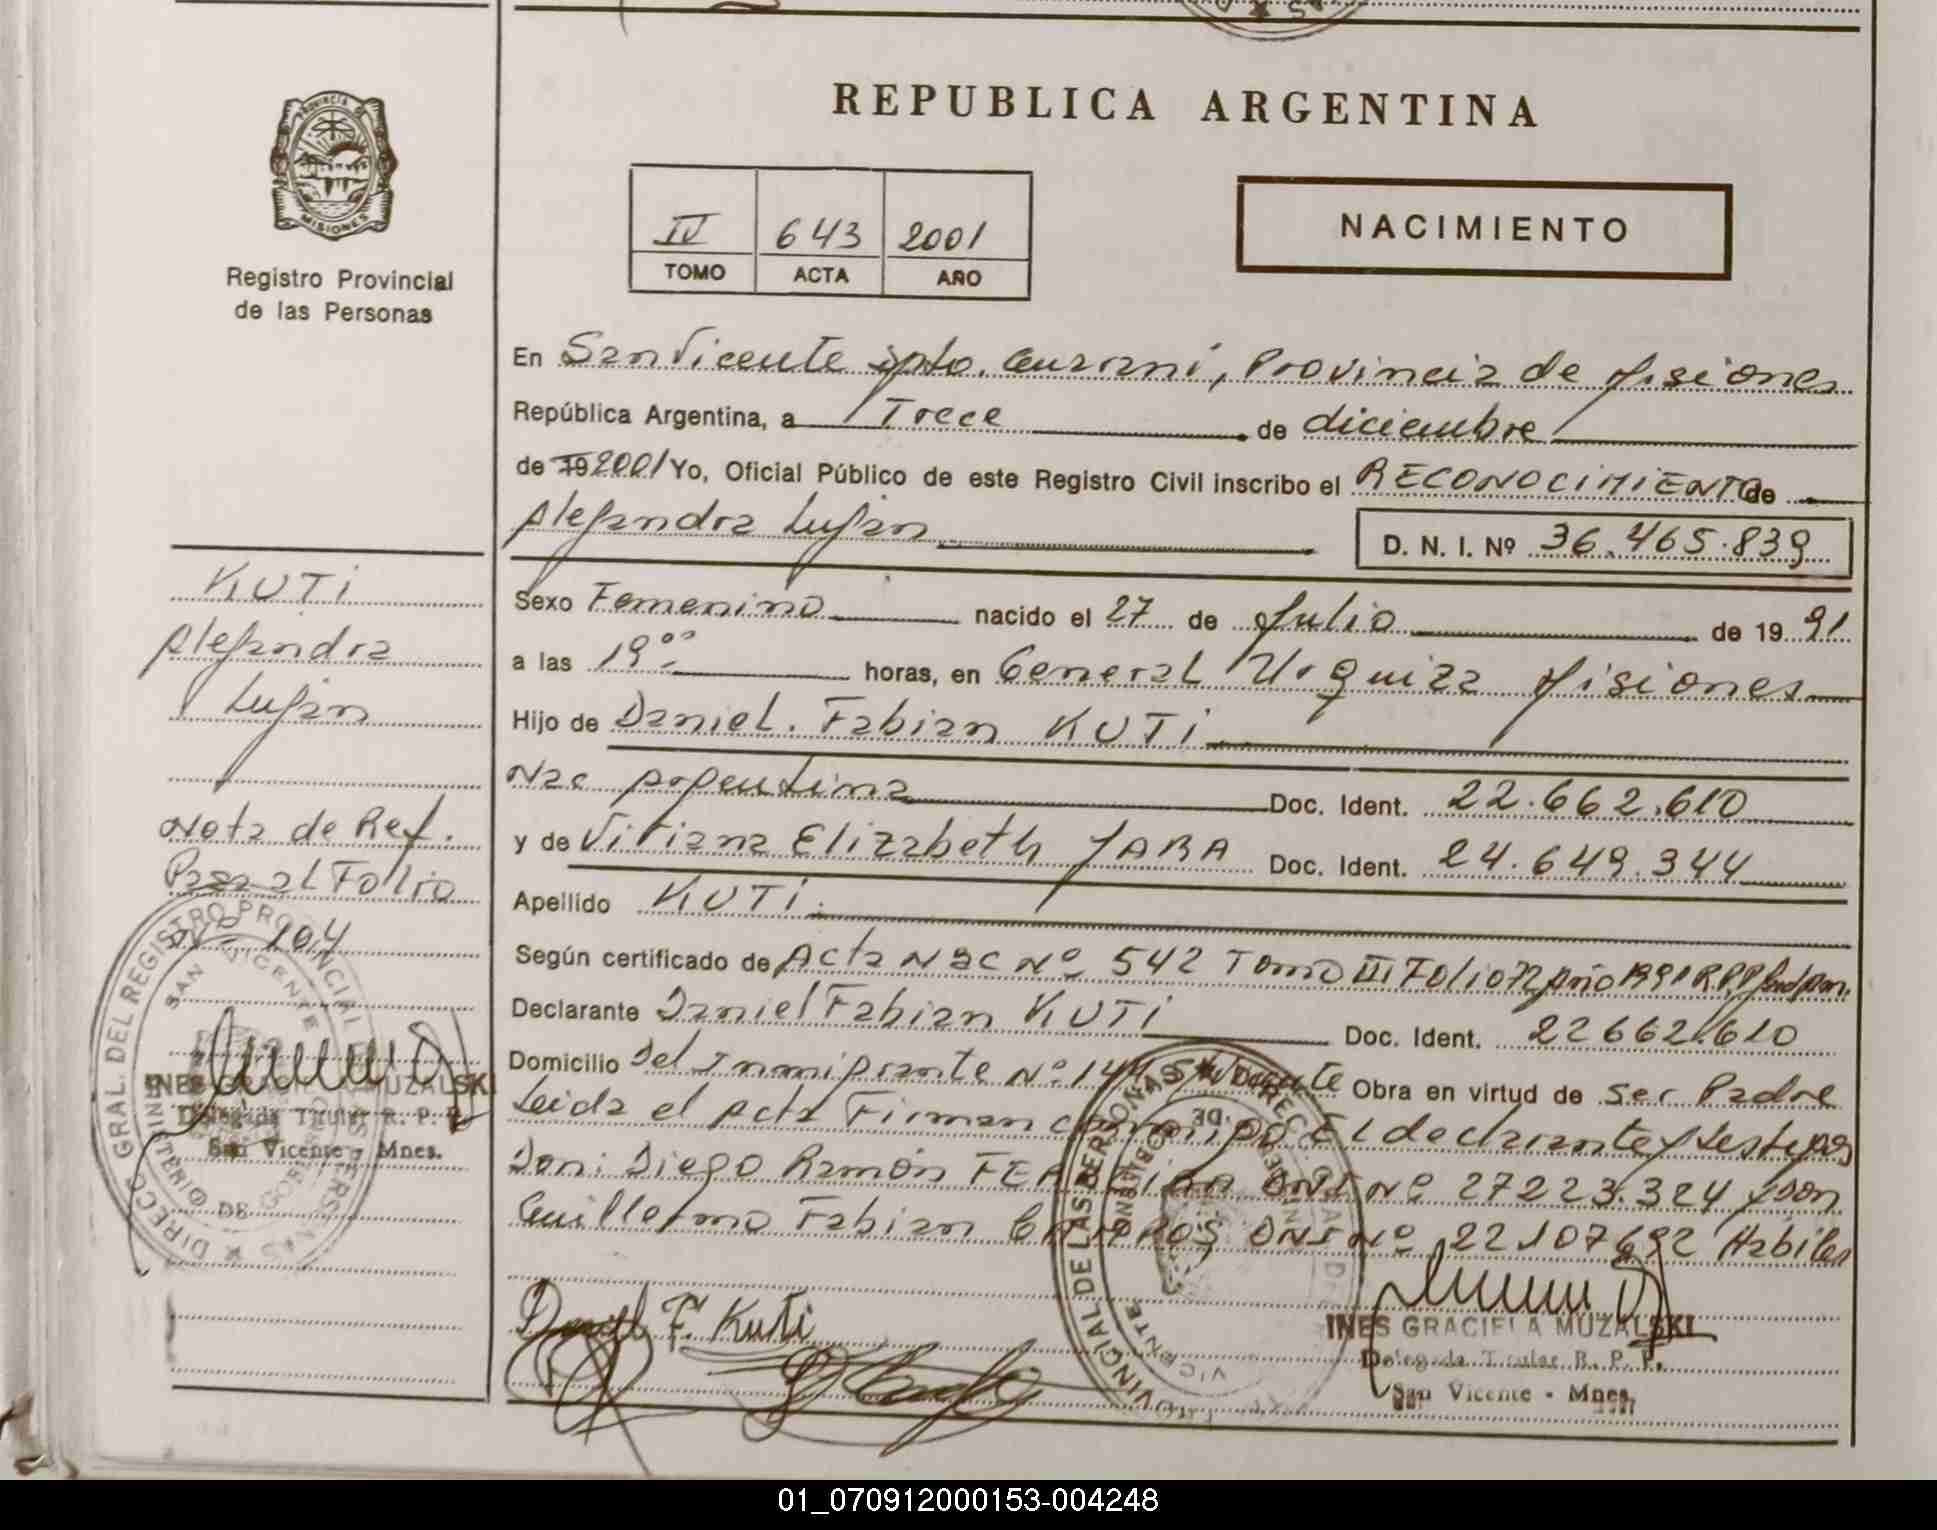 REPUBLICA ARGENTINA
PROVINCIA DE
MISIONES
Registro Provincial
de las Personas
IV 643 2001
TOMO ACTA AÑO
NACIMIENTO
En San Vicente Dpto. Guarani, Provincia de Misiones
República Argentina, a Trece de diciembre
de 19 2001 Yo, Oficial Público de este Registro Civil inscribo el RECONOCIMIENTO de
Alejandra Lujan D. N. I. Nº 36.465.839
Sexo Femenino nacido el 27 de Julio de 19 91
a las 19ºº horas, en General Urquiza Misiones
Hijo de Daniel Fabian KUTI
Nac Argentina Doc. Ident. 22.662.610
y de Viviana Elizabeth JARA Doc. Ident. 24.649.344
Apellido KUTI
Según certificado de Acta Nac Nº 542 Tomo III Folio 72 Año 1991 R.P.P.
Declarante Daniel Fabian KUTI Doc. Ident. 22662.610
Domicilio Del Inmigrante Nº Obra en virtud de ser Padre
Leida el Acta Firman conmigo El declarante y testigos
Don: Diego Ramón DNI Nº 27223.324 y Don
Guillermo Fabian DNI Nº 22107692 Habiles
Daniel F. Kuti
INES GRACIELA MUZALSKI
Delegada Titular R. P. P.
San Vicente - Mnes.
KUTI
Alejandra
Lujan
Nota de Ref.
Pasa al Folio
Nº 104
INES GRACIELA MUZALSKI
Delegada Titular R. P. P.
San Vicente - Mnes.
DIRECC. GRAL. DEL REGISTRO PROVINCIAL DE LAS PERSONAS
SAN VICENTE
MINISTERIO DE GOBIERNO
01_070912000153-004248